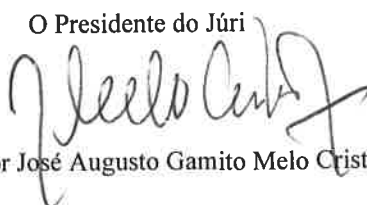 O Presidente do Júri
Melo Crist
or José Augusto Gamito Melo Crist